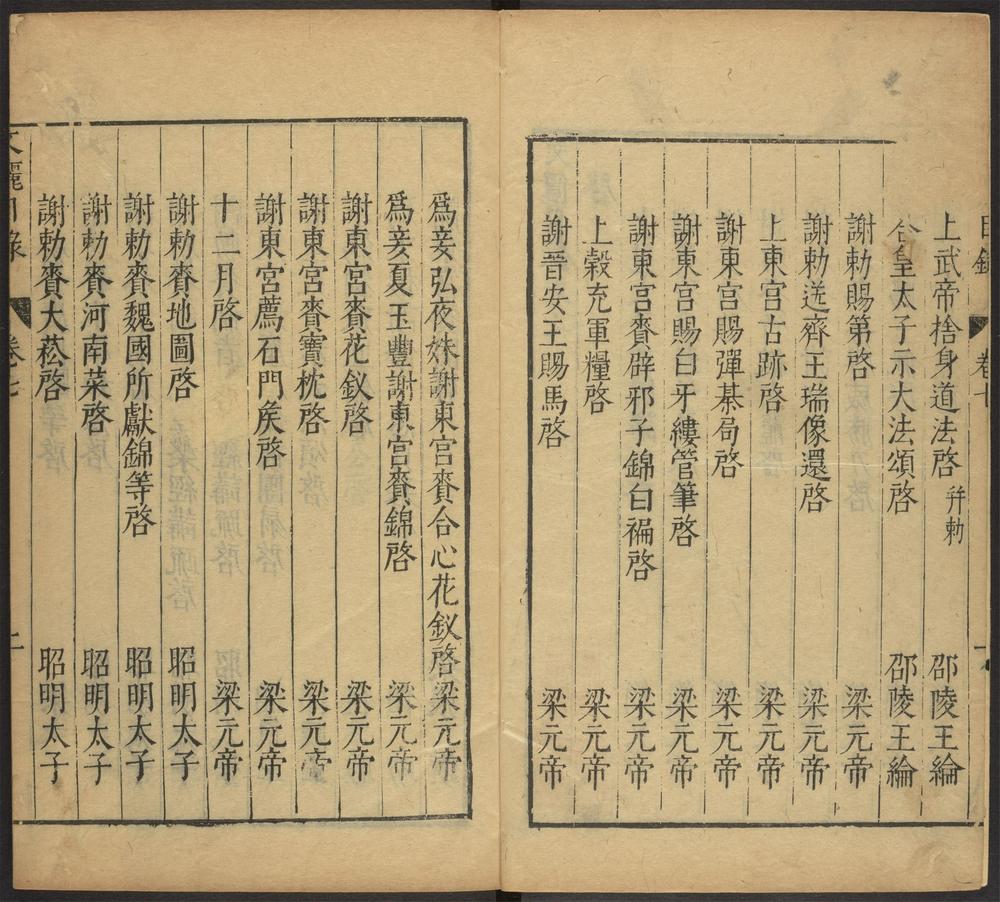 目錄 卷七
上武帝捨身道法啓 幷勅 邵陵王綸
答皇太子示大法頌啓 邵陵王綸
謝勅賜第啓 梁元帝
謝勅送齊王瑞像還啓 梁元帝
上東宮古跡啓 梁元帝
謝東宮賜彈棊局啓 梁元帝
謝東宮賜白牙縷管筆啓 梁元帝
謝東宮賚辟邪子錦白褊啓 梁元帝
上穀充軍糧啓 梁元帝
謝晉安王賜馬啓 梁元帝
爲妾弘夜姝謝東宮賚合心花釵啓 梁元帝
爲妾夏王豐謝東宮賚錦啓 梁元帝
謝東宮賚花釵啓 梁元帝
謝東宮賚寶枕啓 梁元帝
謝東宮薦石門矦啓 梁元帝
十二月啓 梁元帝
謝勅賚地圖啓 昭明太子
謝勅賚魏國所獻錦等啓 昭明太子
謝勅賚河南菜啓 昭明太子
謝勅賚大菘啓 昭明太子
儷目錄 卷七 二